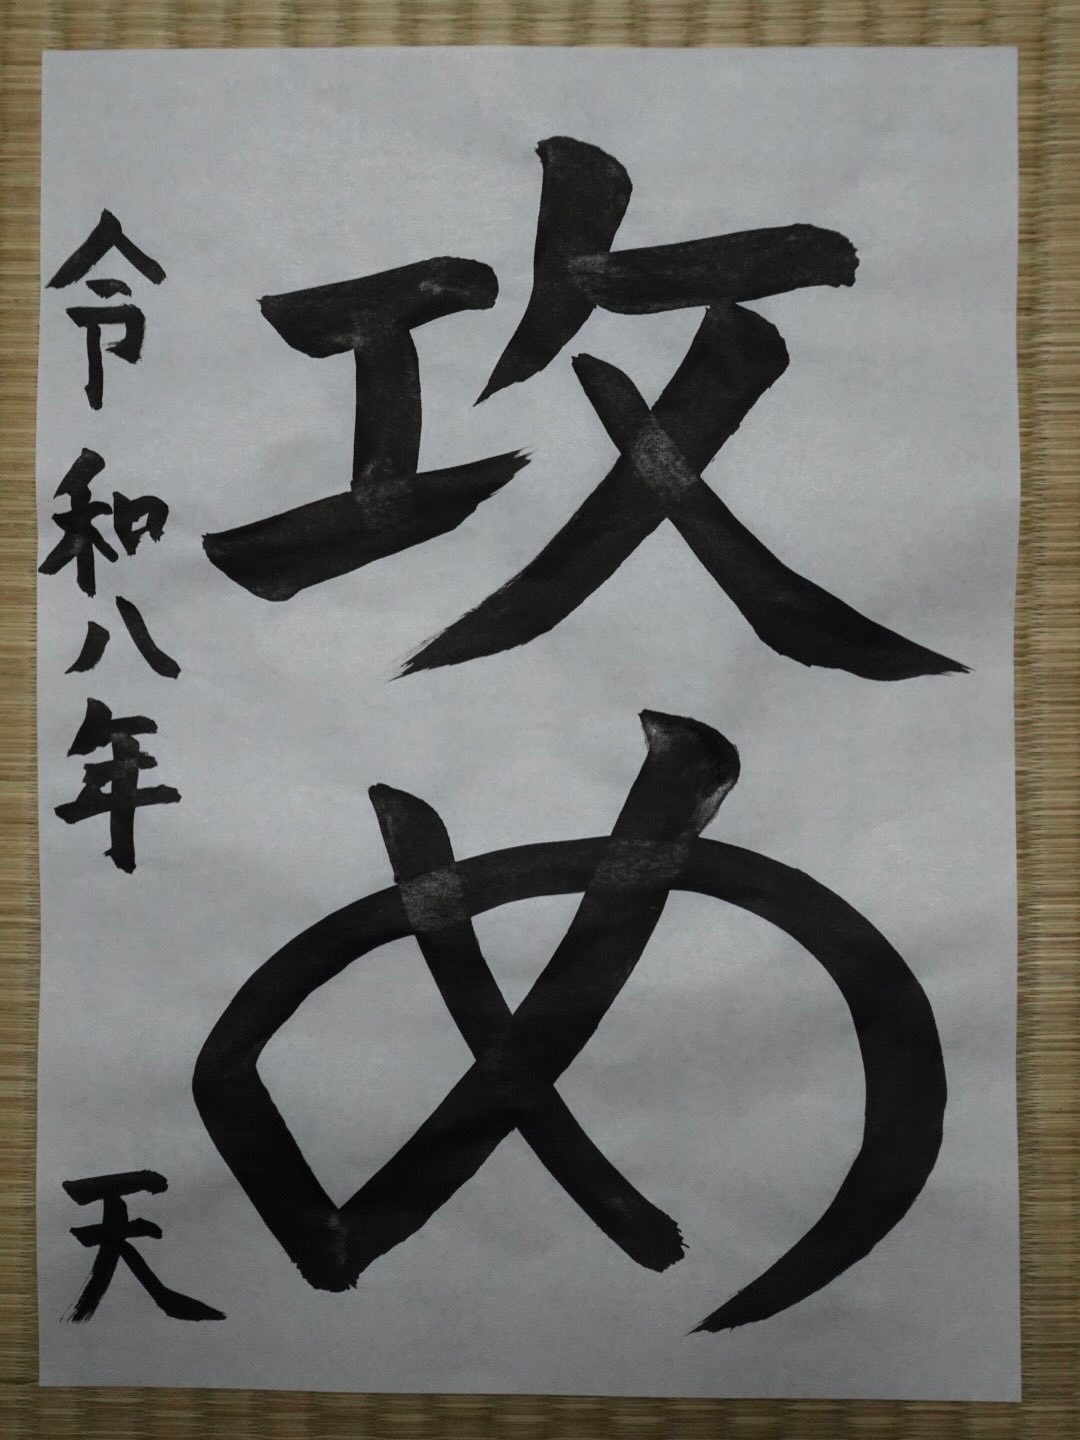 攻め
令和八年
天